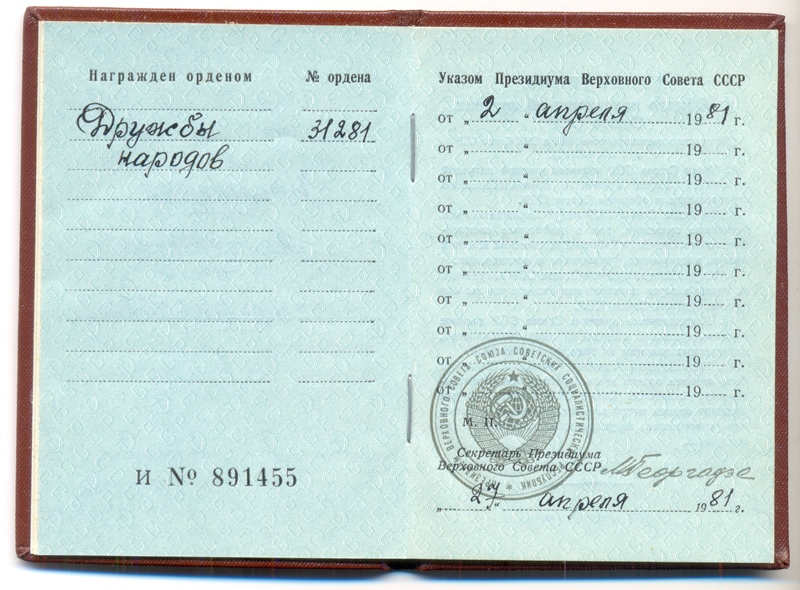 Награжден орденом
№ ордена
Дружбы
народов
31281
И № 891455
Указом Президиума Верховного Совета СССР
от „ 2 “ апреля 1981 г.
от „ “ 19 г.
от „ “ 19 г.
от „ “ 19 г.
от „ “ 19 г.
от „ “ 19 г.
от „ “ 19 г.
от „ “ 19 г.
от „ “ 19 г.
от „ “ 19 г.
М. П.
Секретарь Президиума
Верховного Совета СССР МГеоргадзе
„ 27 “ апреля 1981 г.
ВЕРХОВНОГО СОВЕТА СОЮЗА СОВЕТСКИХ СОЦИАЛИСТИЧЕСКИХ РЕСПУБЛИК